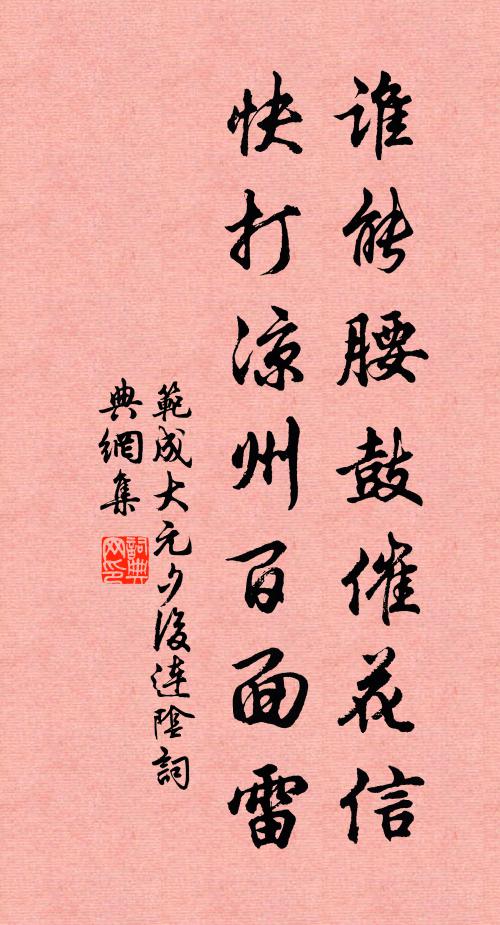 谁能腰鼓催花信
快打凉州百面雷
範成大元夕後連陰詞
典網集
詞典
网印